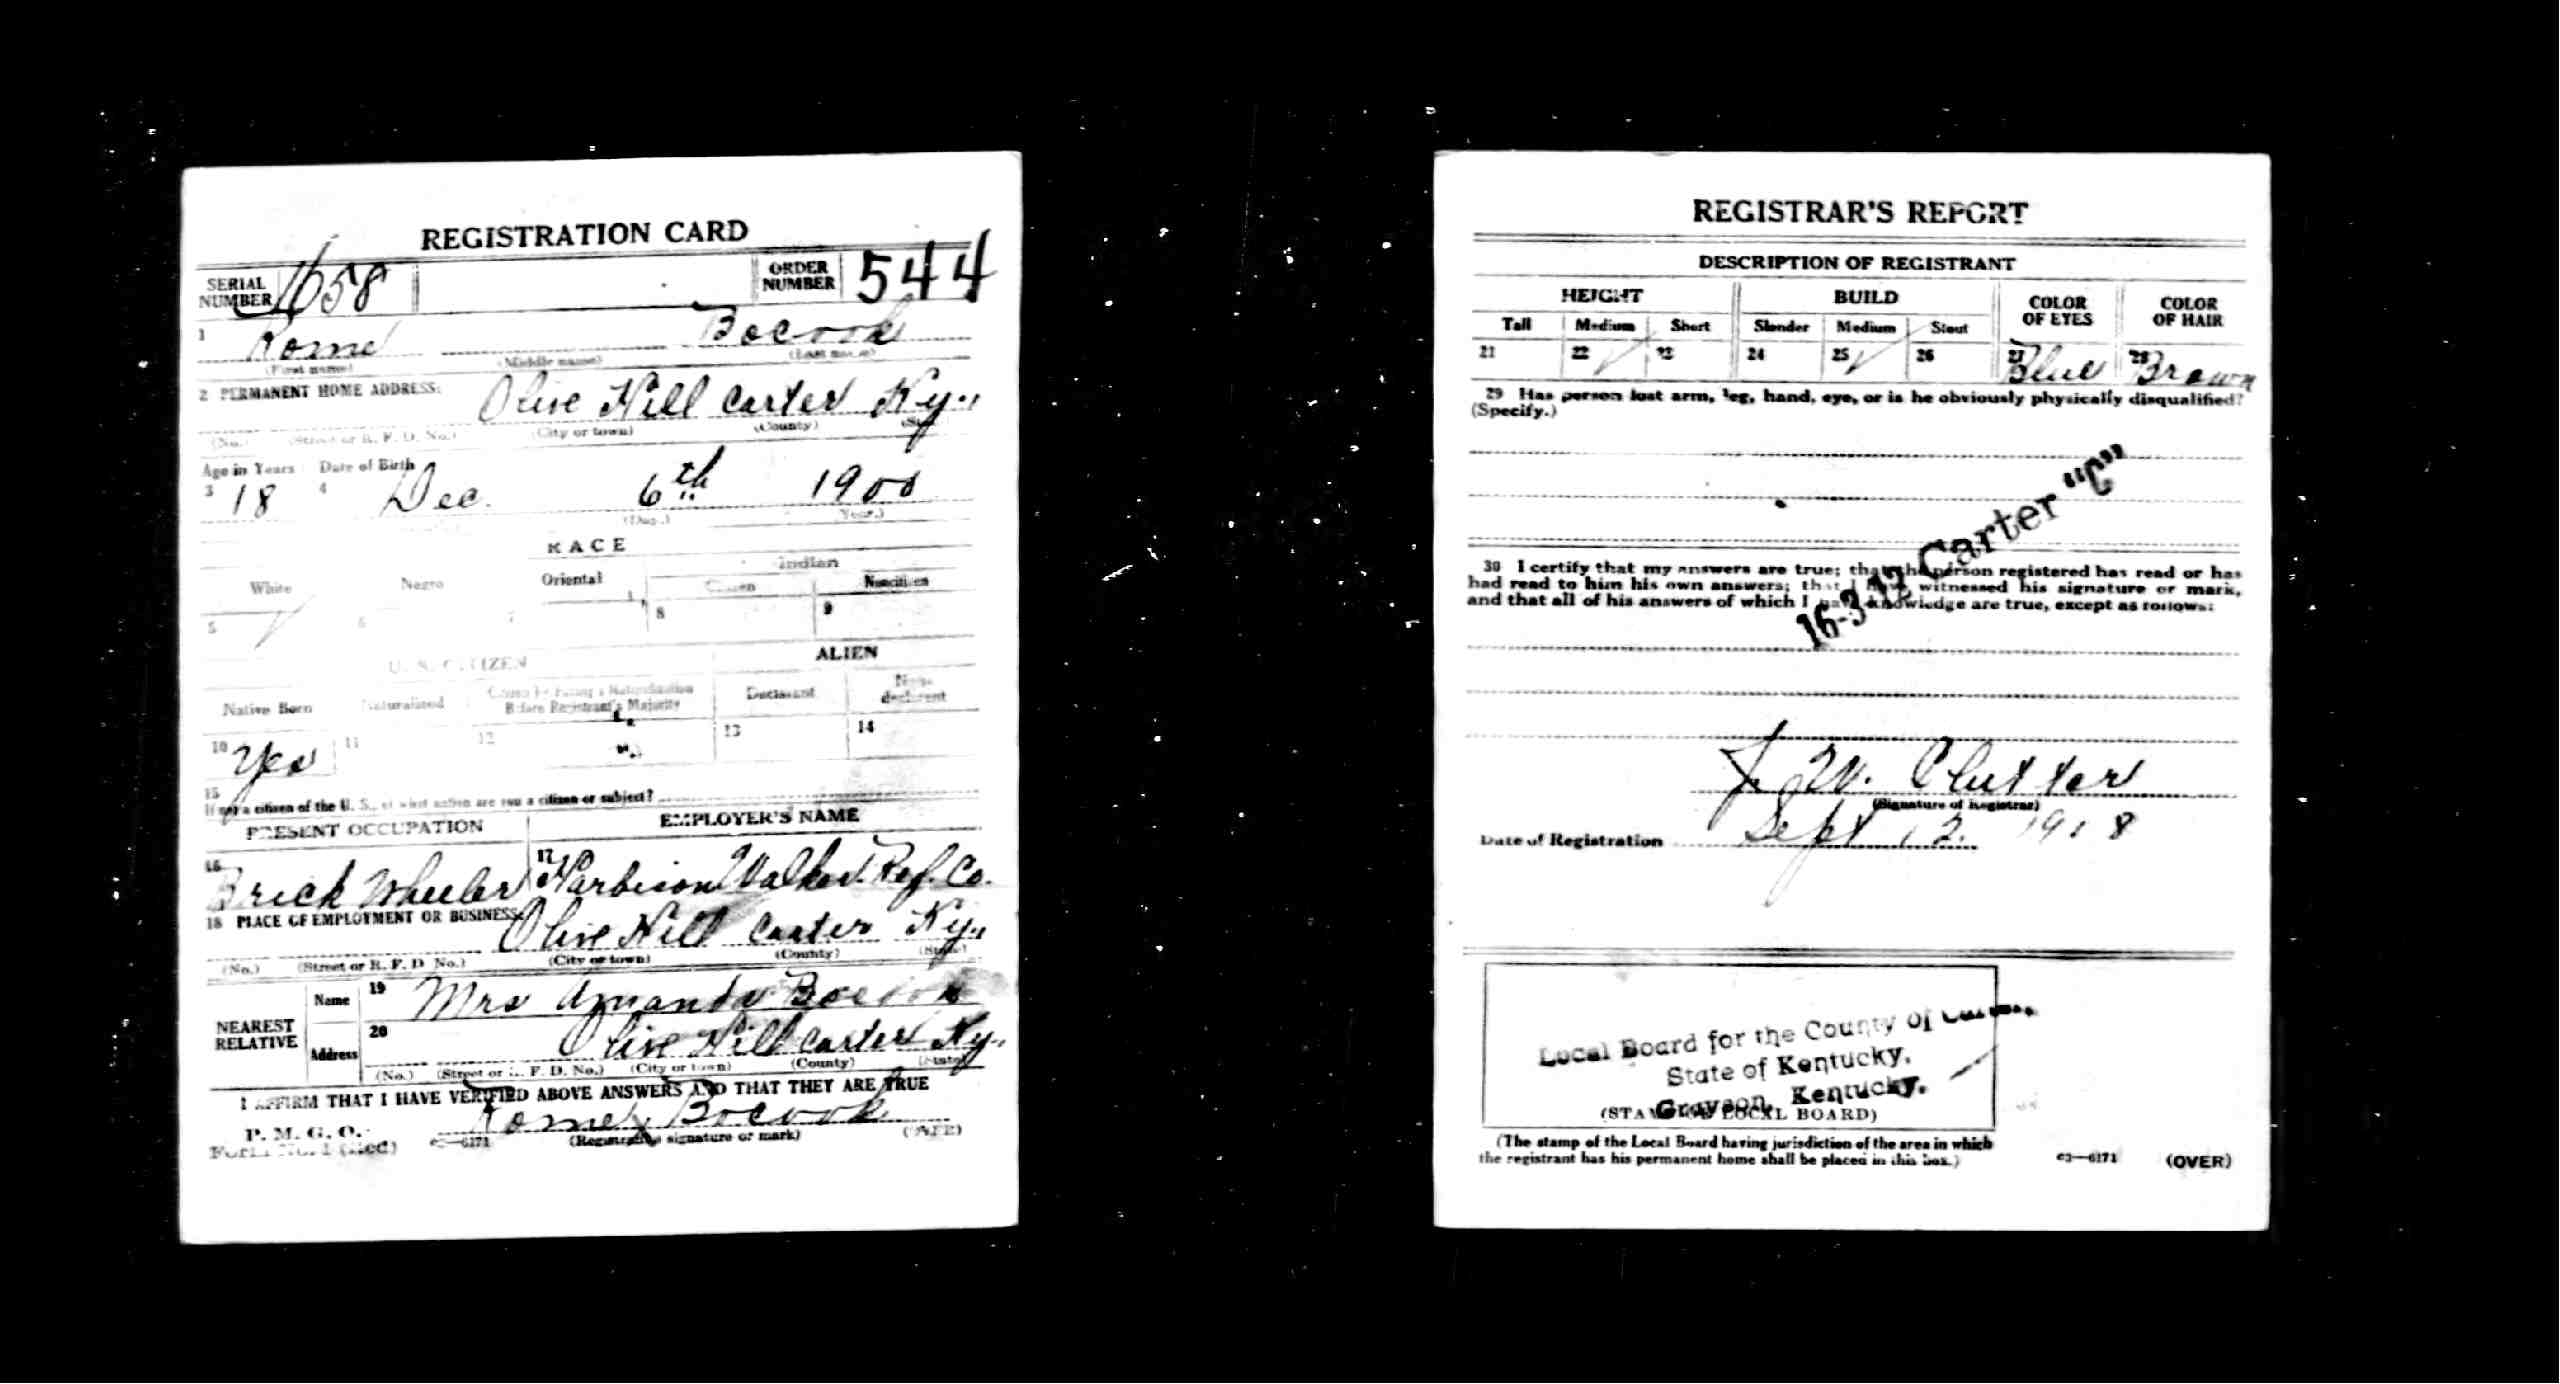 REGISTRATION CARD
SERIAL NUMBER 1658 ORDER NUMBER 544
1 Rome Bocook
(First name) (Middle name) (Last name)
2 PERMANENT HOME ADDRESS:
Olive Hill Carter Ky.,
(No.) (Street or R. F. D. No.) (City or town) (County)
Age in Years Date of Birth
3 18 4 Dec. 6th
(Day.) Year.)
RACE
White Negro Oriental Indian
Citizen Noncitizen
5 6 7 8 9
U. S. CITIZEN ALIEN
Native Born Naturalized Citizen by Father's Naturalization Before Registrant's Majority Declarant Non-declarant
10 Yes 11 12 13 14
15
If not a citizen of the U. S., of what nation are you a citizen or subject?
PRESENT OCCUPATION EMPLOYER'S NAME
16 Brick Wheeler 17 Harbison Walker Ref. Co.
18 PLACE OF EMPLOYMENT OR BUSINESS:
Olive Hill Carter Ky.,
(No.) (Street or R. F. D. No.) (City or town) (County) (State)
NEAREST RELATIVE
Name 19 Mrs Amanda Bocook
Address 20 Olive Hill Carter Ky.,
(No.) (Street or R. F. D. No.) (City or town) (County) (State)
I AFFIRM THAT I HAVE VERIFIED ABOVE ANSWERS AND THAT THEY ARE TRUE
Rome Bocook
P. M. G. O.
Form No. 1 (Red) (Registrant's signature or mark) (OVER)
REGISTRAR'S REPORT
DESCRIPTION OF REGISTRANT
HEIGHT BUILD COLOR OF EYES COLOR OF HAIR
Tall Medium Short Slender Medium Stout
21 22 23 24 25 26 27 Blue 28 Brown
29 Has person lost arm, leg, hand, eye, or is he obviously physically disqualified?
(Specify.)
16-3-12 Carter "C"
30 I certify that my answers are true; that the person registered has read or has
had read to him his own answers; that I have witnessed his signature or mark,
and that all of his answers of which I have knowledge are true, except as follows:
W. Clutter
(Signature of Registrar)
Date of Registration Sept 12. 1918
Local Board for the County of Carter,
State of Kentucky,
Grayson, Kentucky.
(STAMP OF LOCAL BOARD)
(The stamp of the Local Board having jurisdiction of the area in which
the registrant has his permanent home shall be placed in this box.)
03—6171 (OVER)